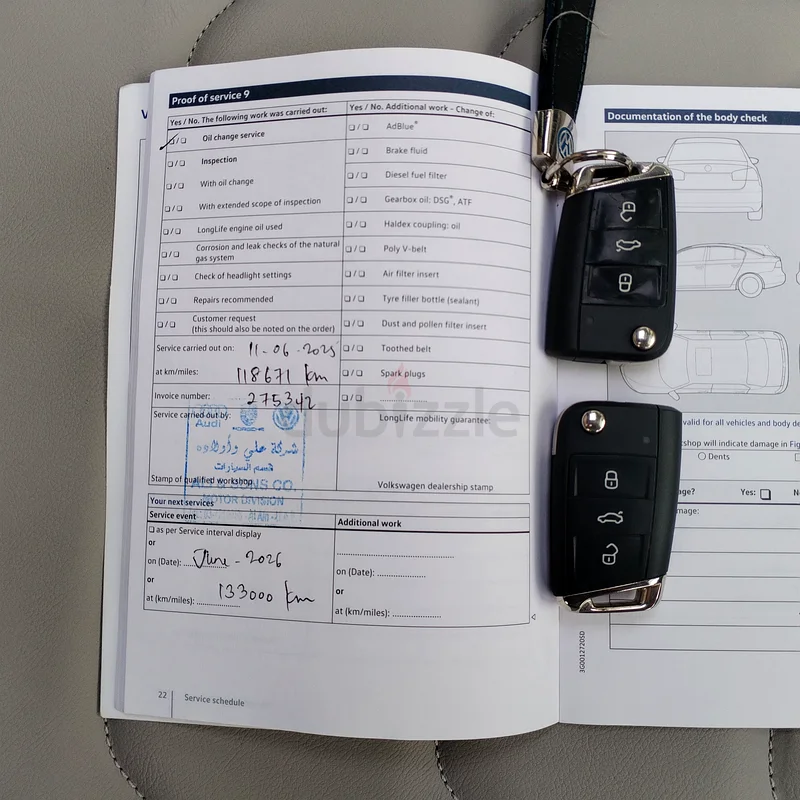 Proof of service 9
Yes / No. The following work was carried out:
Oil change service
Inspection
With oil change
With extended scope of inspection
LongLife engine oil used
Corrosion and leak checks of the natural
gas system
Check of headlight settings
Repairs recommended
Customer request
(this should also be noted on the order)
Service carried out on: 11-06-2025
at km/miles: 118671 km
Invoice number: 275342
Service carried out by:
Audi
PORSCHE
شركة علي وأولاده
قسم السيارات
ALI & SONS CO.
MOTOR DIVISION
Stamp of qualified workshop
Yes / No. Additional work - Change of:
AdBlue®
Brake fluid
Diesel fuel filter
Gearbox oil: DSG®, ATF
Haldex coupling: oil
Poly V-belt
Air filter insert
Tyre filler bottle (sealant)
Dust and pollen filter insert
Toothed belt
Spark plugs
LongLife mobility guarantee:
Volkswagen dealership stamp
Your next services
Service event
as per Service interval display
or
on (Date): June - 2026
or
at (km/miles): 133000 km
Additional work
on (Date):
or
at (km/miles):
22
Service schedule
Documentation of the body check
valid for all vehicles and body
shop will indicate damage in
Dents
Yes:
3G0012720SD
dubizzle